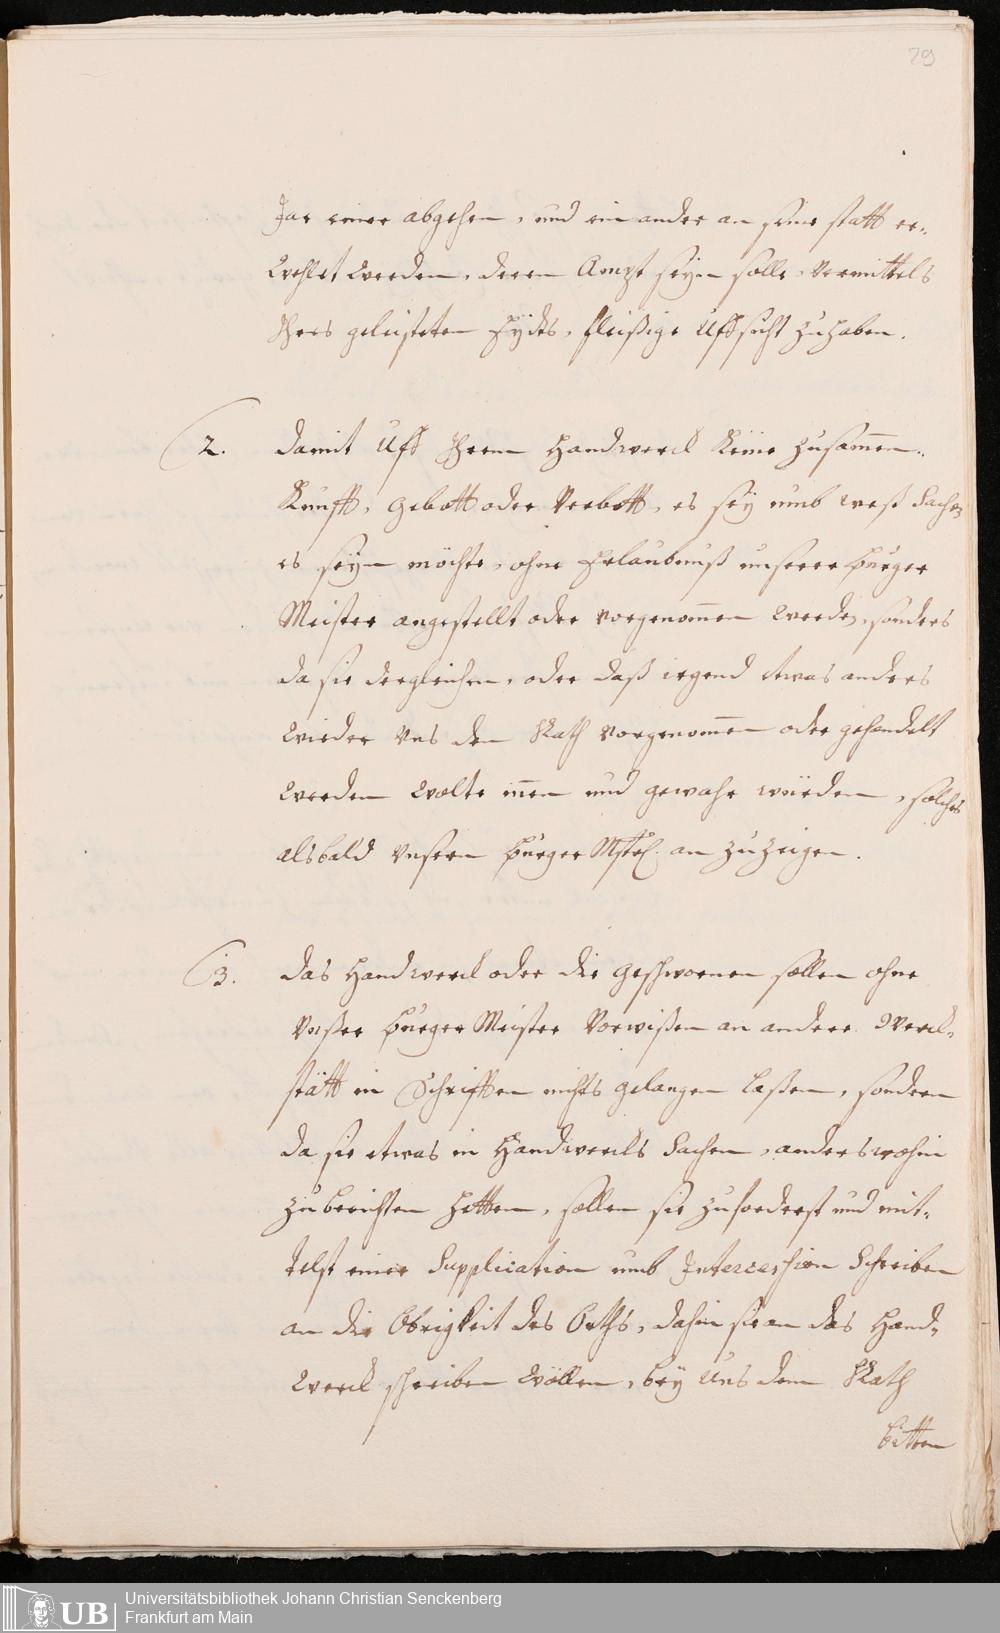 29
Jar einer abgehen, und ein ander an seine statt er-
wehlet werden, deren Ampt seyn solle, vermittels
Ihres geleisteten Eydts, fleißige Uffsicht zu haben.
2. Damit Uff Ihrem Handwerck keine zusam̅en-
kunfft, Gebott oder Verbott, es sey umb weß Sachen
es seyn möchte, ohne Erlaubnuß unserer Burger
Meister angestellt oder vorgenom̅en werden, sonders
da sie dergleichen, oder daß irgend etwas anders
wieder Uns den Rath vorgenom̅en oder gehandelt
werden wolte in̅en und gewahr würden, solches
alsbald Unsern Burger Mstrn. an zu zeigen.
3. Das Handwerck oder die Geschwornen sollen ohne
Unßer Burger Meister Vorwißen an andere Werck-
stätt in Schrifften nichts gelangen laßen, sondern
da sie etwas in Handwercks Sachen, anderswohin
zu berichten hetten, sollen sie zuforderst und mit-
telst einer Supplication umb Intercession Schreiben
an die Obrigkeit des Orths, dahin sie an das Hand-
werck schreiben wöllen, bey Uns dem Rath
bitten
UB
Universitätsbibliothek Johann Christian Senckenberg
Frankfurt am Main